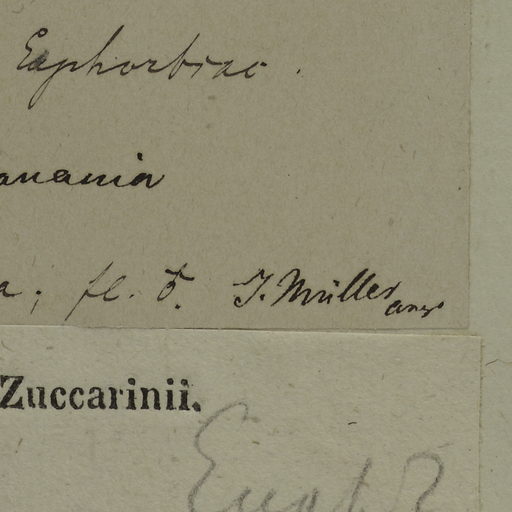 Euphorbiac.
anamia
a; fl. ♂. J. Müller
Zuccarinii.
Euph?